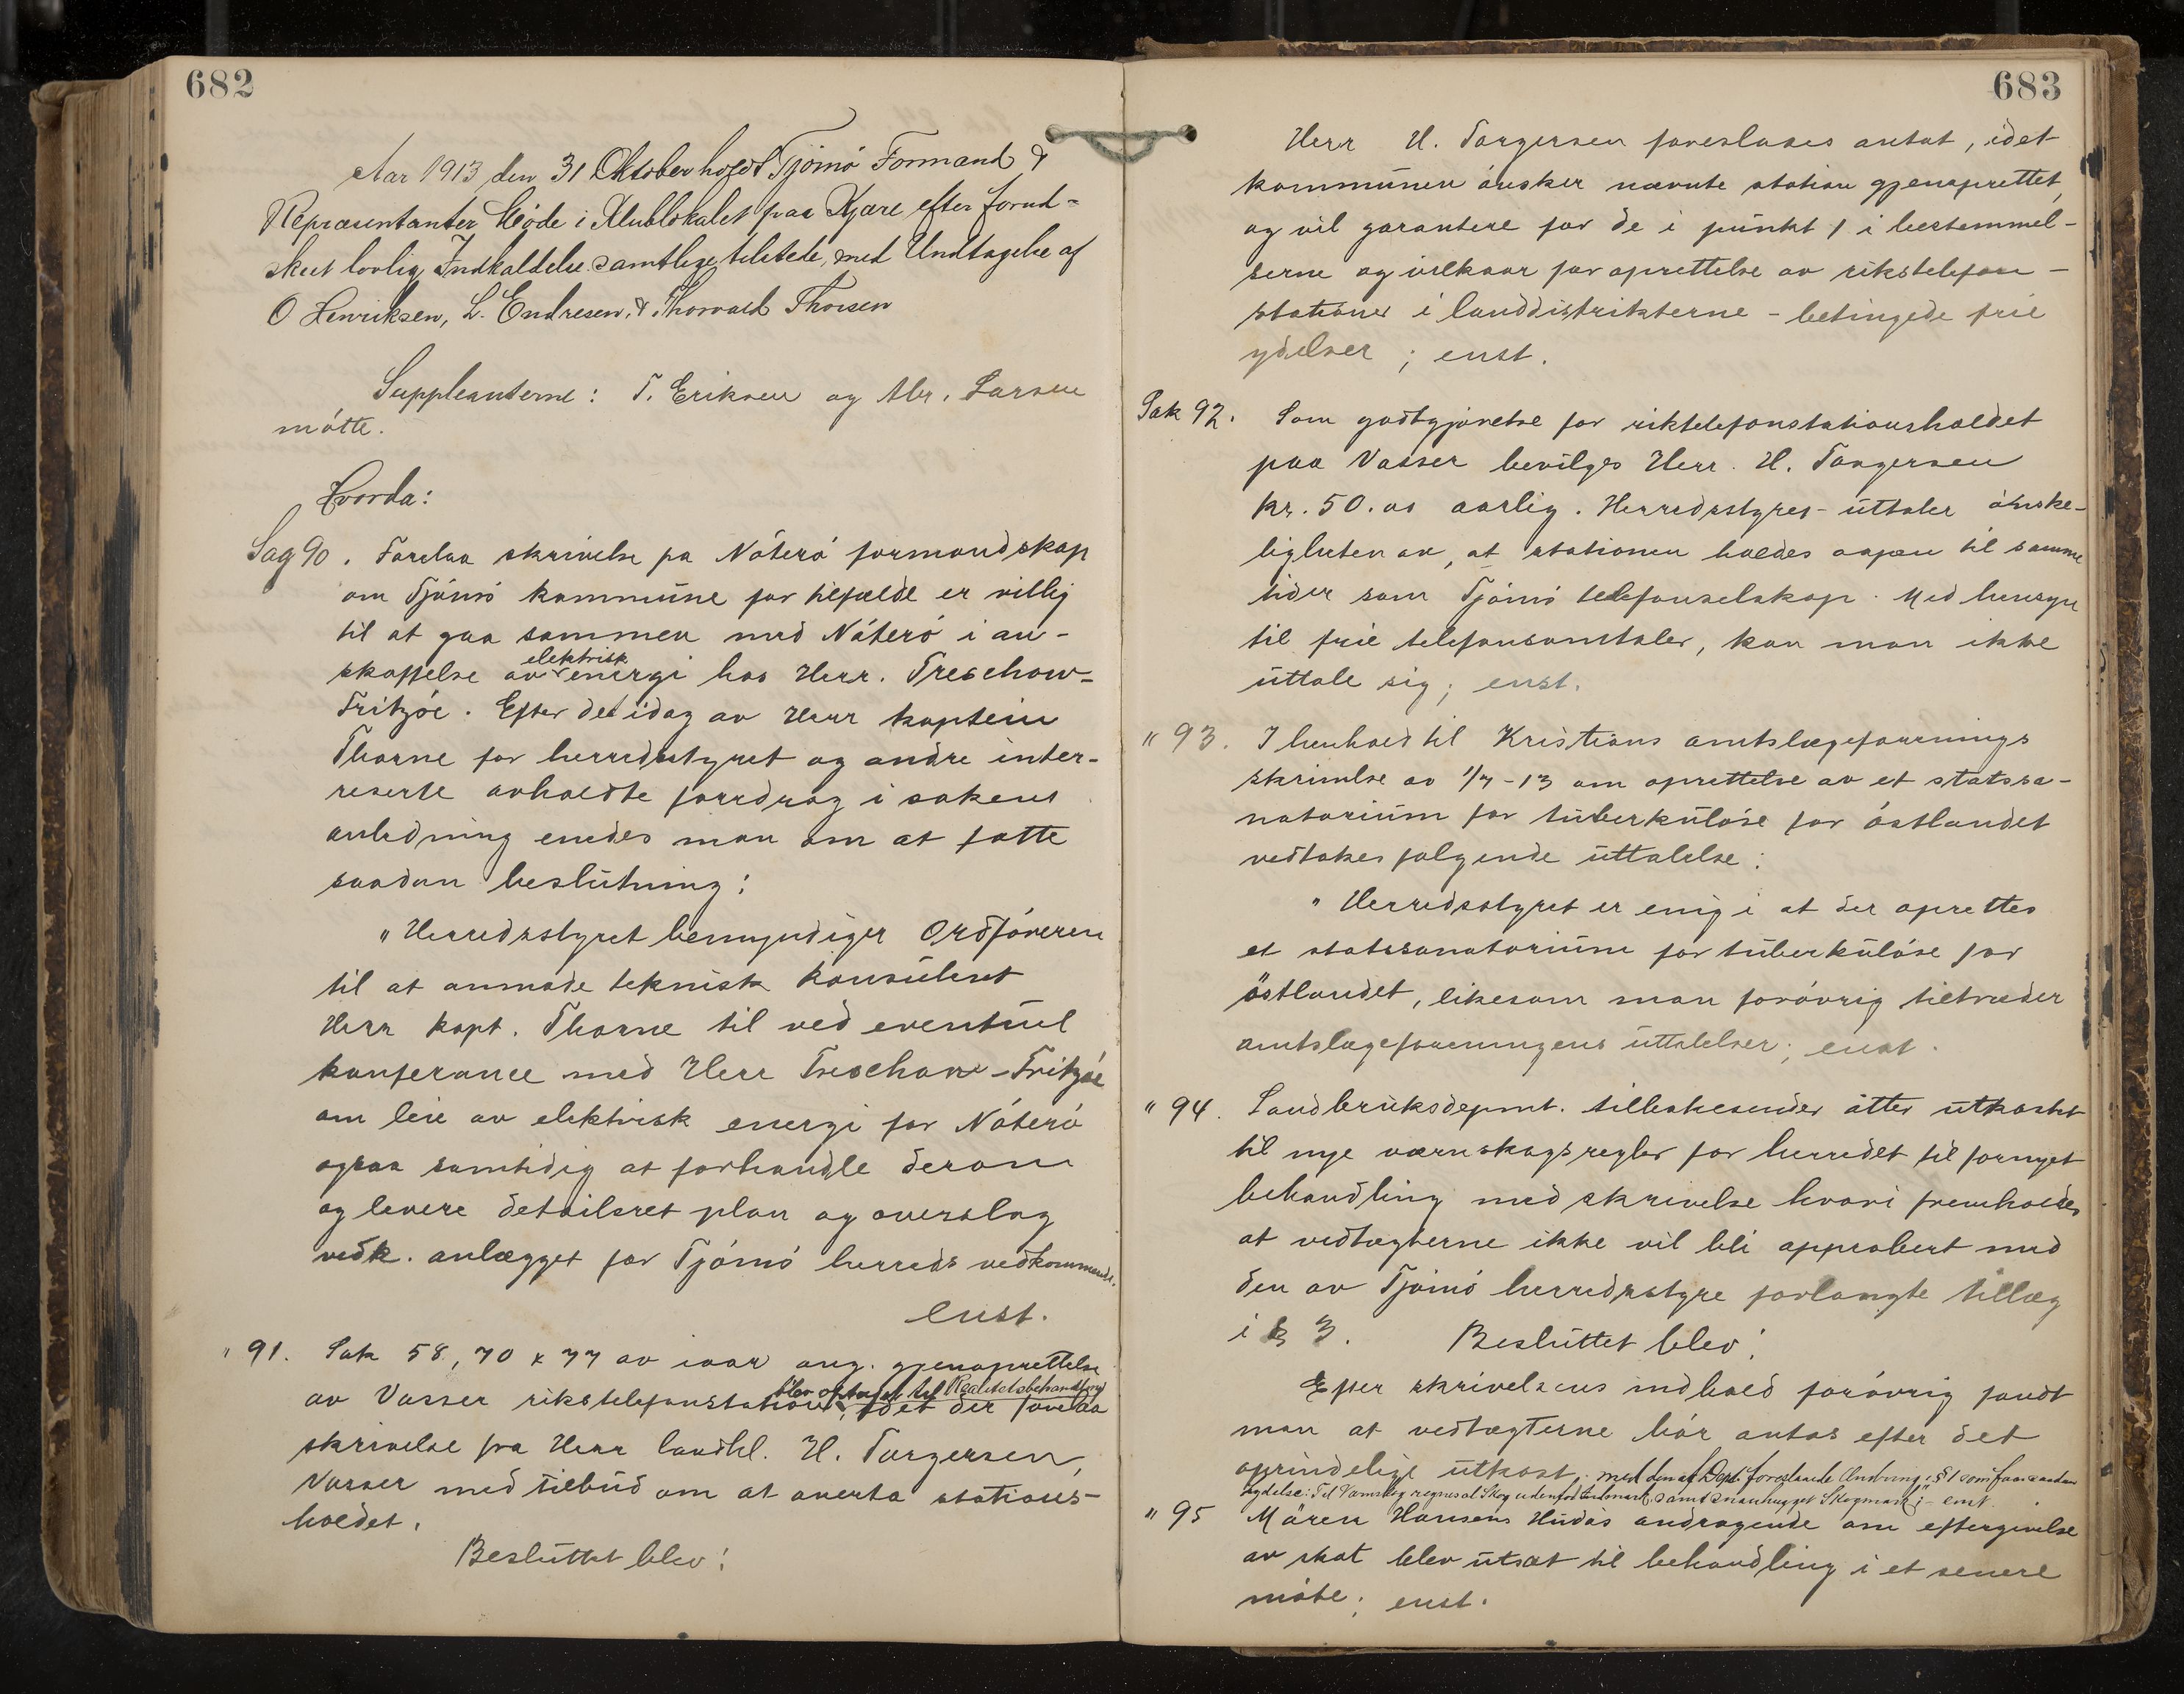 682
Aar 1913 den 31 Oktober holdt Tjømø Formand &
Repræsentanter Møde i Klublokalet paa Kjære efter forud-
skeet lovlig Indkaldelse. Samtlige tilstede, med Undtagelse af
O Henriksen, L. Endresen, & Thorvald Thorsen
Suppleanterne: T. Eriksen og Abr. Larsen
møtte.
Hvorda:
Sag 90. Forelaa skrivelse fra Nøterø formandskap
om Tjømø kommune for tilfælde er villig
til at gaa sammen med Nøterø i an-
skaffelse av elektrisk energi hos Herr. Treschow-
Fritzøe. Efter det idag av Herr kaptein
Thorne for herredsstyret og andre inter-
reserte avholdte foredrag i sakens
anledning enedes man om at fatte
saadan beslutning:
"Herredsstyret bemyndiger Ordføreren
til at anmode teknisk konsulent
Herr kapt. Thorne til ved eventuel
konferance med Herr Treschow-Fritzøe
om leie av elektrisk energi for Nøterø
ogsaa samtidig at forhandle derom
og levere detaileret plan og overslag
vedk. anlægget for Tjømø herreds vedkommende.
enst.
" 91. Sak 58, 70 & 77 av iaar ang. gjenoprettelse
av Vasser rikstelefonstation blev optaget til Realitetsbehandling, idet der forelaa
skrivelse fra Herr landhl. H. Torgersen,
Vasser med tilbud om at overta stations-
holdet.
Besluttet blev:
683
Herr H. Torgersen foreslaaes antat, idet
kommunen ønsker nævnte station gjenoprettet,
og vil garantere for de i punkt 1 i bestemmel-
serne og vilkaar for oprettelse av rikstelefon-
stationer i landdistrikterne - betingede frie
ydelser; enst.
Sak 92. Som godtgjørelse for rikstelefonstationsholdet
paa Vasser bevilges Herr. H. Torgersen
kr. 50.00 aarlig. Herredsstyres uttaler ønske-
ligheten av, at stationen holdes aapen til samme
tider som Tjømø telefonselskap. Med hensyn
til frie telefonsamtaler, kan man ikke
uttale sig; enst.
" 93. I henhold til Kristians amtslægeforenings
skrivelse av 1/7-13 om oprettelse av et statssa-
natorium for tuberkuløse for østlandet
vedtakes følgende uttalelse:
"Herredsstyret er enig i at der oprettes
et statssanatorium for tuberkuløse for
østlandet, likesom man forøvrig tiltræder
amtslægeforeningens uttalelser; enst.
" 94. Landbruksdepmt. tilbakesender atter utkastet
til nye værnskogsregler for herredet til fornyet
behandling med skrivelse hvori fremholdes
at vedtægterne ikke vil bli approbert med
den av Tjømø herredsstyre forlangte tillæg
i § 3. Besluttet blev:
Efter skrivelsens indhold forøvrig fandt
man at vedtægterne bør antas efter det
oprindelige utkast, med den af Dept. foreslaaede Ændring i § 1 som faar saadan
lydelse: Til Værnskog regnes al Skog udenfor Indmark, samt snauhugget Skogmark; - enst.
" 95 Maren Hansens Hudøs andragende om eftergivelse
av skat blev utsat til behandling i et senere
møte; enst.